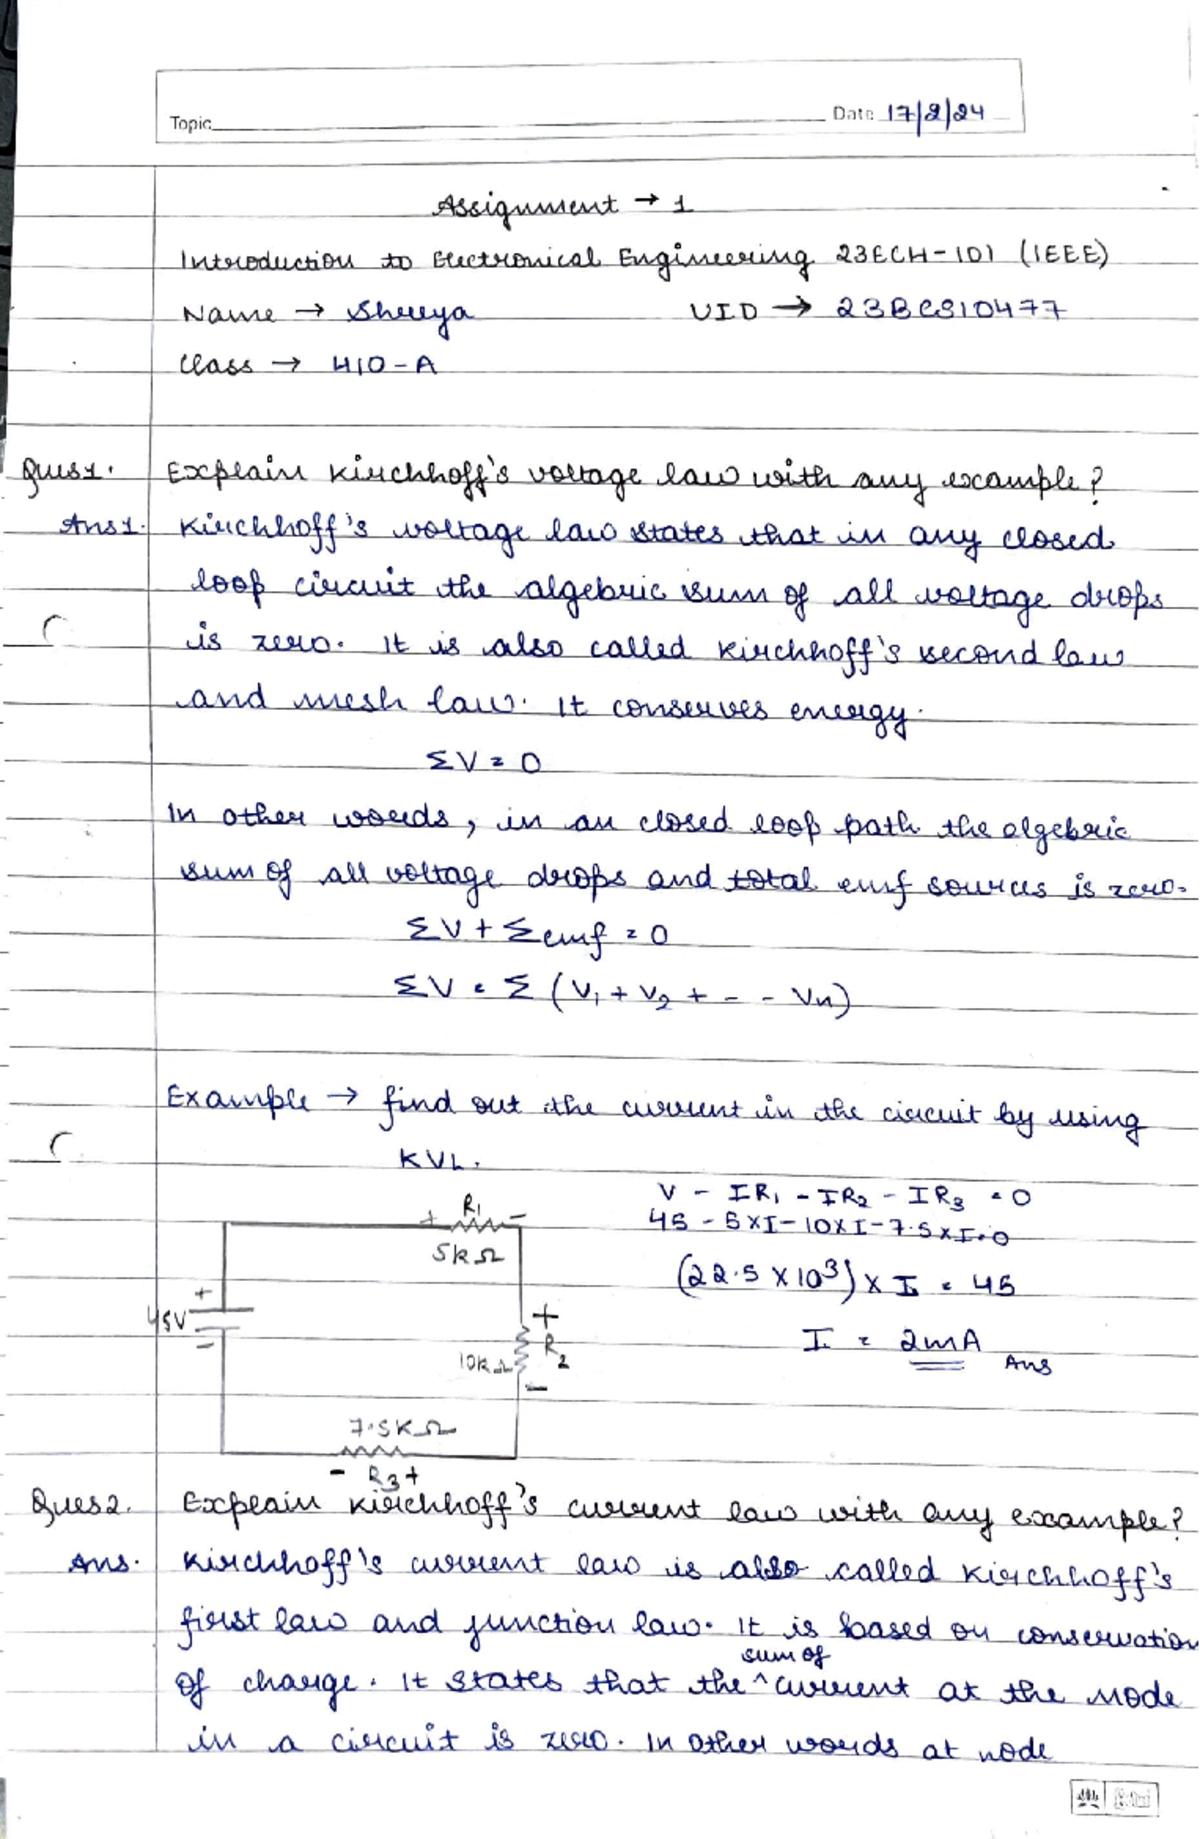 Topic
Date 17/2/24
Assignment → 1
Introduction to Electronical Engineering 23ECH-101 (IEEE)
Name → Shreya UID → 23BCS10477
Class → 410-A
Ques1. Explain Kirchhoff's voltage law with any example?
Ans1. Kirchhoff's voltage law states that in any closed
loop circuit the algebric sum of all voltage drops
is zero. It is also called Kirchhoff's second law
and mesh law. It conserves energy.
ΣV = 0
In other words, in an closed loop path the algebric
sum of all voltage drops and total emf sources is zero.
ΣV + Σemf = 0
ΣV = Σ (V₁ + V₂ + - - Vn)
Example → find out the current in the circuit by using
KVL.
V - IR₁ - IR₂ - IR₃ = 0
45 - 5×I - 10×I - 7.5×I = 0
(22.5 × 10³) × I = 45
I = 2mA Ans
+ R₁ -
5kΩ
+
45V
-
+
10kΩ R₂
-
7.5KΩ
- R₃ +
Ques2. Explain Kirchhoff's current law with any example?
Ans. Kirchhoff's current law is also called Kirchhoff's
first law and junction law. It is based on conservation
sum of
of charge. It states that the ^ current at the node
in a circuit is zero. In other words at node